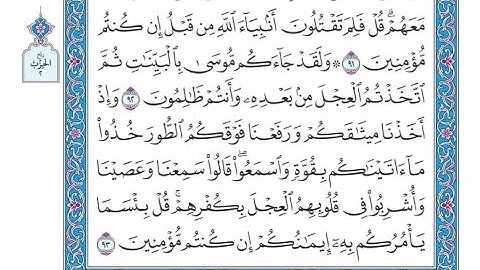 مَعَهُمْ ۗ قُلْ فَلِمَ تَقْتُلُونَ أَنۢبِيَآءَ ٱللَّهِ مِن قَبْلُ إِن كُنتُم
مُّؤْمِنِينَ ٩١ ۞ وَلَقَدْ جَآءَكُم مُّوسَىٰ بِٱلْبَيِّنَٰتِ ثُمَّ
ٱتَّخَذْتُمُ ٱلْعِجْلَ مِنۢ بَعْدِهِۦ وَأَنتُمْ ظَٰلِمُونَ ٩٢ وَإِذْ
أَخَذْنَا مِيثَٰقَكُمْ وَرَفَعْنَا فَوْقَكُمُ ٱلطُّورَ خُذُوا۟
مَآ ءَاتَيْنَٰكُم بِقُوَّةٍ وَٱسْمَعُوا۟ ۖ قَالُوا۟ سَمِعْنَا وَعَصَيْنَا
وَأُشْرِبُوا۟ فِى قُلُوبِهِمُ ٱلْعِجْلَ بِكُفْرِهِمْ ۚ قُلْ بِئْسَمَا
يَأْمُرُكُم بِهِۦٓ إِيمَٰنُكُمْ إِن كُنتُم مُّؤْمِنِينَ ٩٣
ربع
الحزب
٢